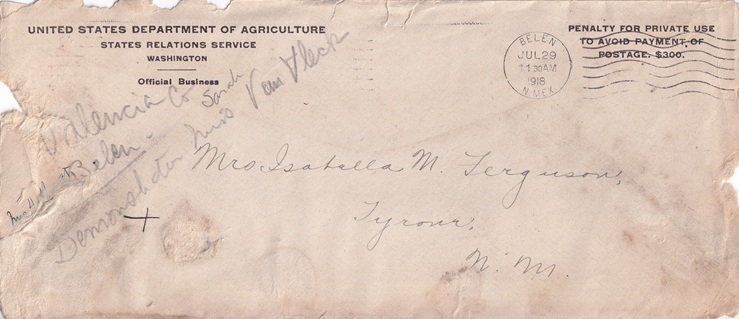 UNITED STATES DEPARTMENT OF AGRICULTURE
STATES RELATIONS SERVICE
WASHINGTON
Official Business
PENALTY FOR PRIVATE USE
TO AVOID PAYMENT OF
POSTAGE, $300.
BELEN
JUL 29
11 30 AM
1918
N. MEX.
Valencia Co
Belen.
Demonstrator Miss Sarah Van Vleck
Mrs. Isabella M. Ferguson,
Tyrone,
N. M.